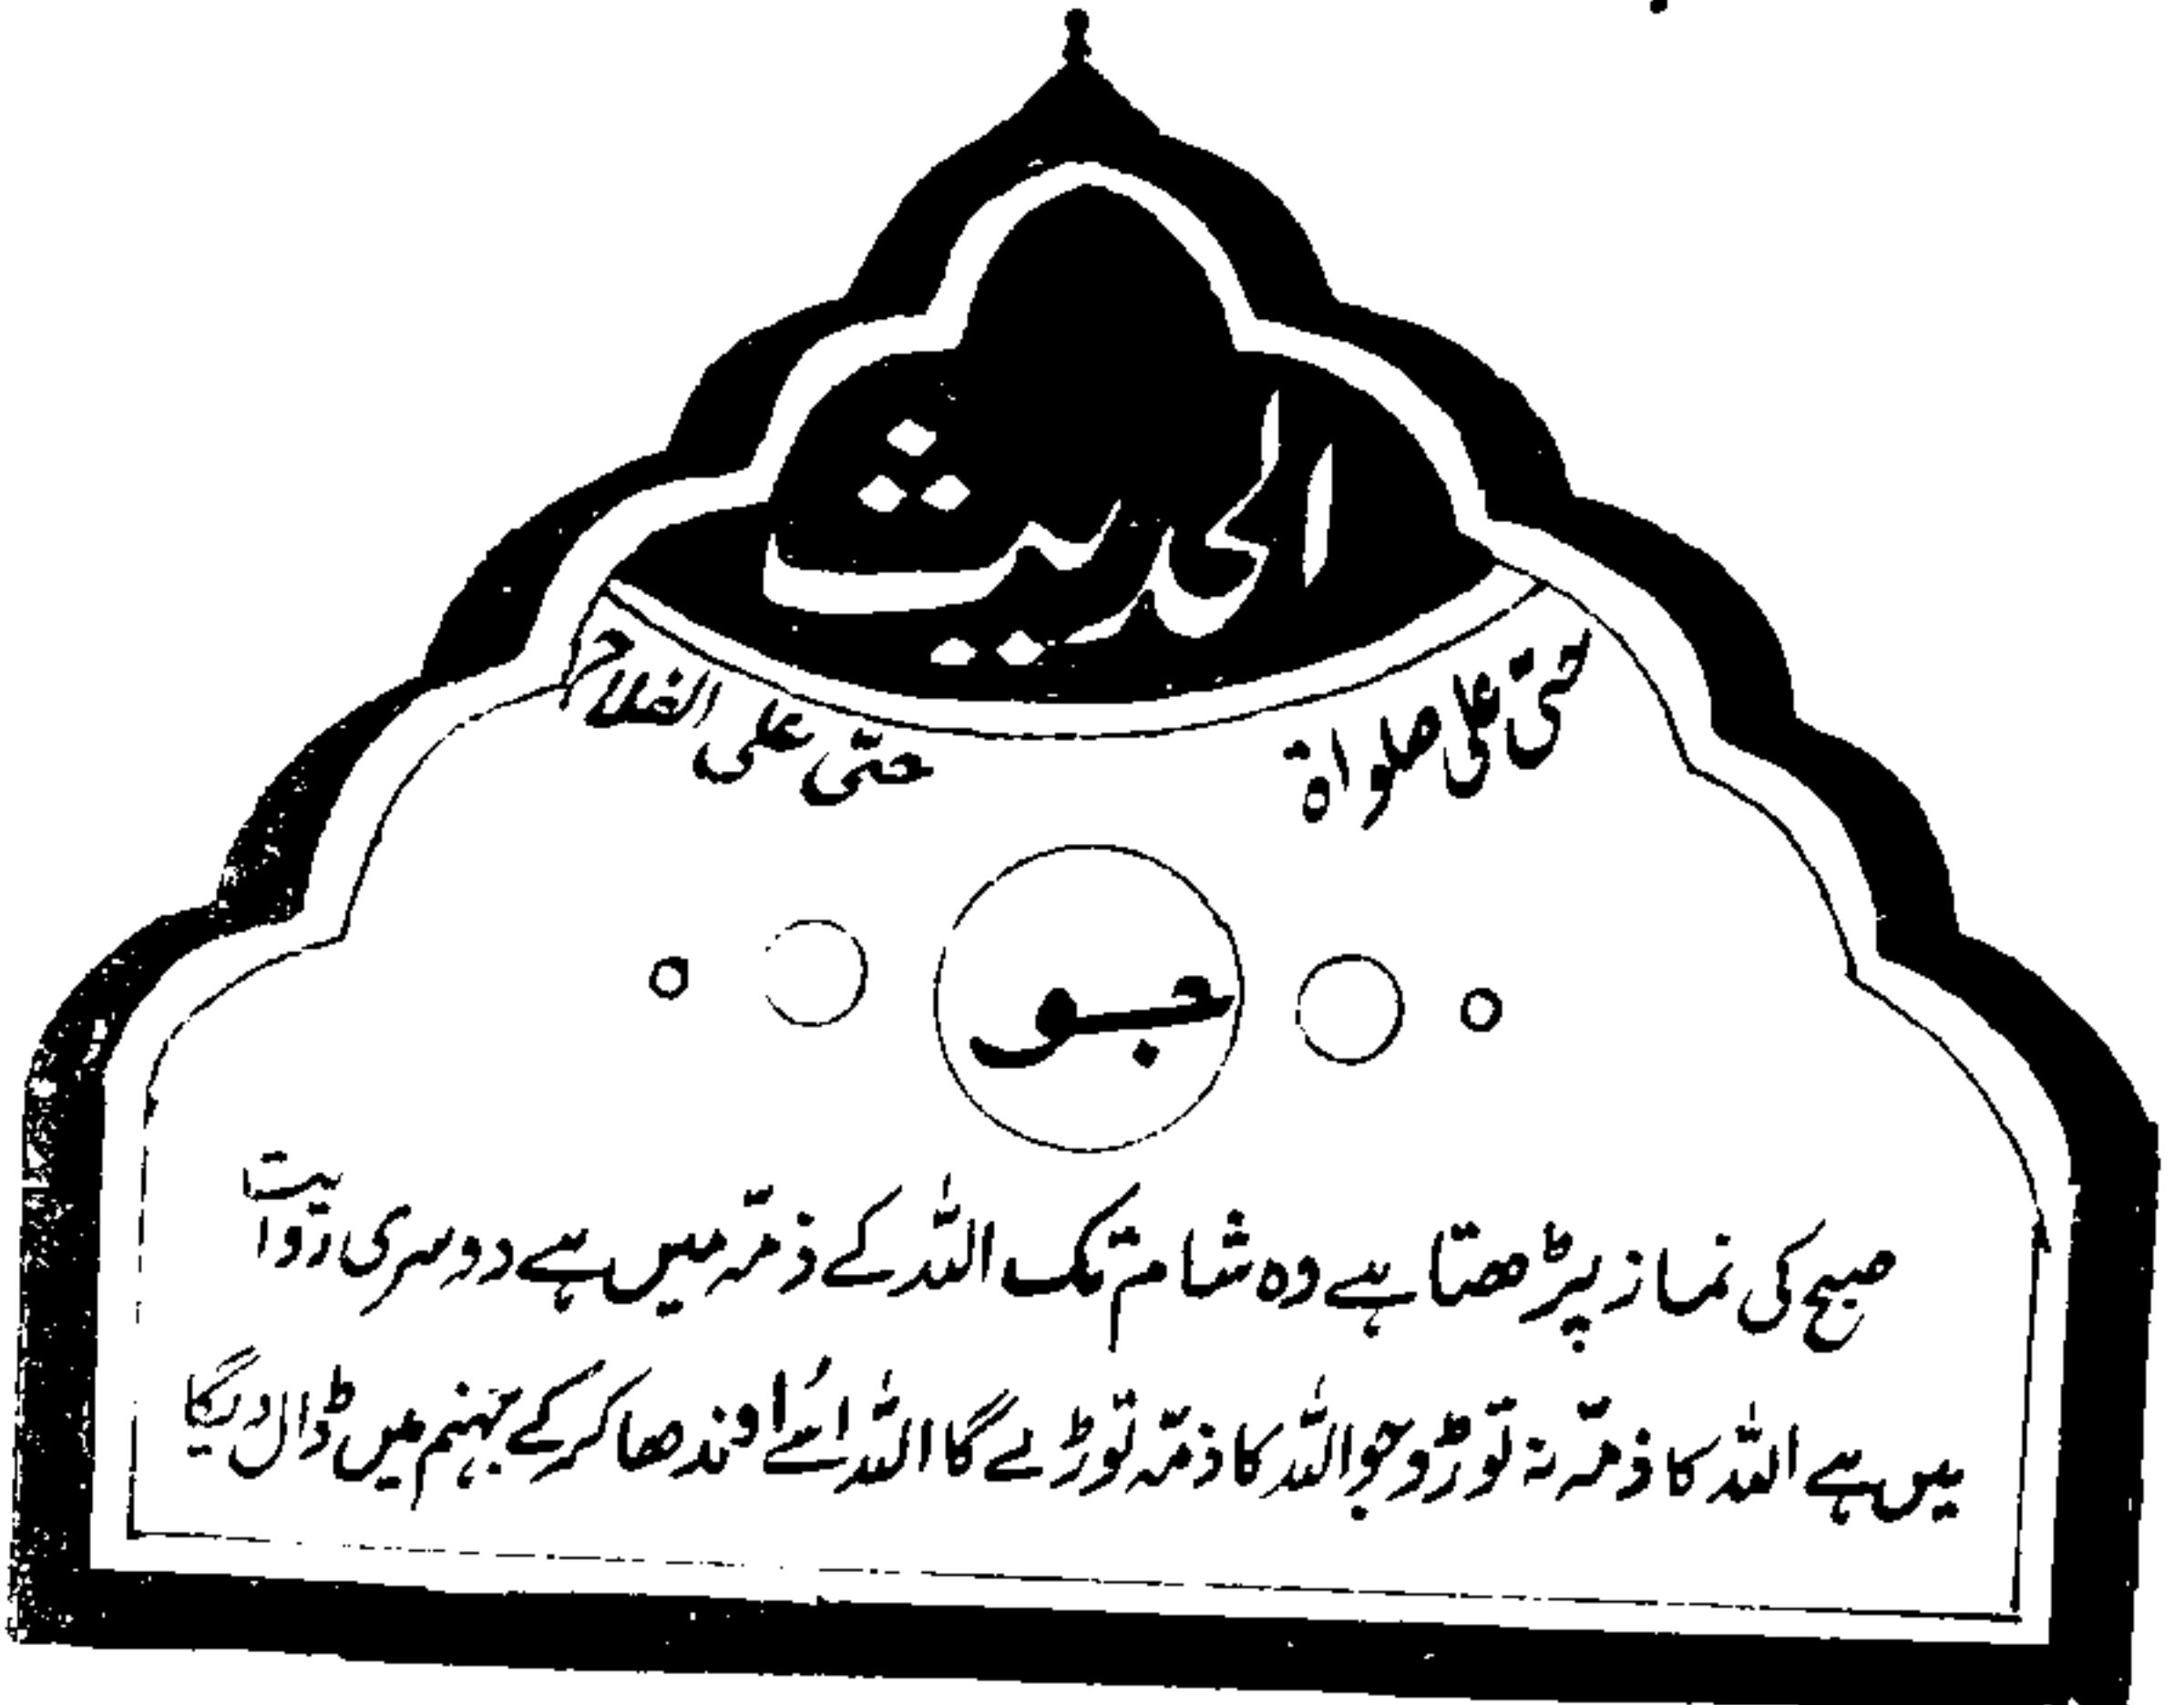 الحدیث
حیّ علی صلواۃ
حیّ علی الفلاح
جو
صبح کی نماز پڑھتا ہے وہ شام تک اللہ کے ذمّہ میں ہے دوسری روایت
میں ہے اللہ کا ذمّہ نہ توڑو جو اللہ کا ذمّہ توڑے گا اللہ اُسے اوندھا کرکے جہنم میں ڈال دیگا